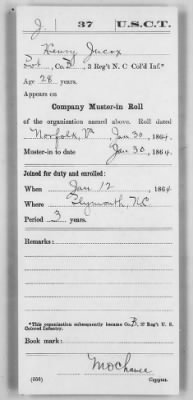 J. | 37 | U.S.C.T.
Henry Jacox
Pvt., Co. B, 3 Reg't N. C Col'd Inf.*
Age 28 years.
Appears on
Company Muster-in Roll
of the organization named above. Roll dated
Norfolk, Va, Jan 30, 1864.
Muster-in to date Jan 30, 1864.
Joined for duty and enrolled:
When Jan 12, 1864
Where Plymouth, N.C
Period 3 years.
Remarks:
*This organization subsequently became Co. B, 37 Reg't U. S. Colored Infantry.
Book mark:
(656) Copyist.